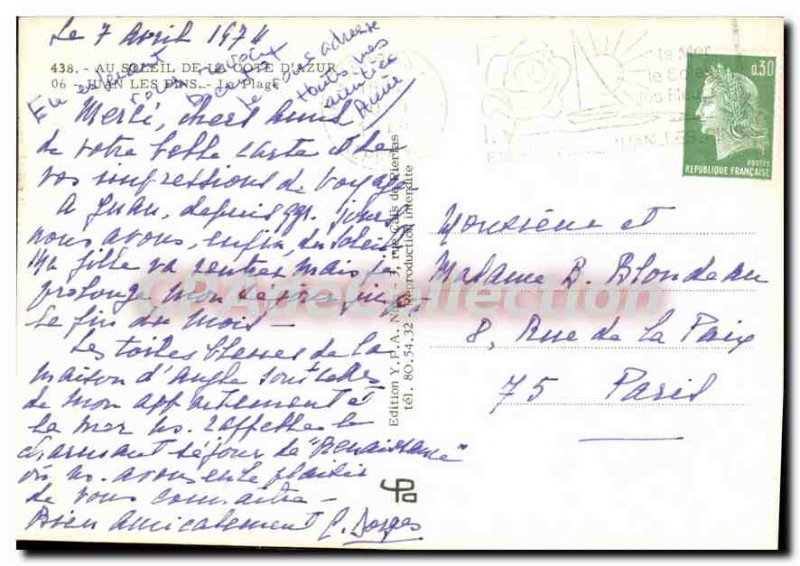 Le 7 Avril 1974
438. - AU SOLEIL DE LA COTE D'AZUR
06 - JUAN LES PINS. - La Plage
Merci, chers amis
de votre belle carte et de
vos impressions de voyage
A Juan, depuis qqs. jours
nous avons, enfin, du soleil
Ma fille va rentrer mais je
prolonge mon séjour jusqu'à
la fin du mois -
Les toiles bleues de la
maison d'angle sont celles
de mon appartement et
la mer ns. rappelle le
charmant séjour de "Renaissance"
où ns. avons eu le plaisir
de vous connaître -
Bien amicalement
la Mer
le Soleil
les Fleurs
JUAN LES PINS
0,30
POSTES
REPUBLIQUE FRANÇAISE
Edition Y.P.A.
tél. 80.54.32 - Reproduction interdite
Monsieur et
Madame B. Blondeau
8, Rue de la Paix
75 Paris
CPA de Collection